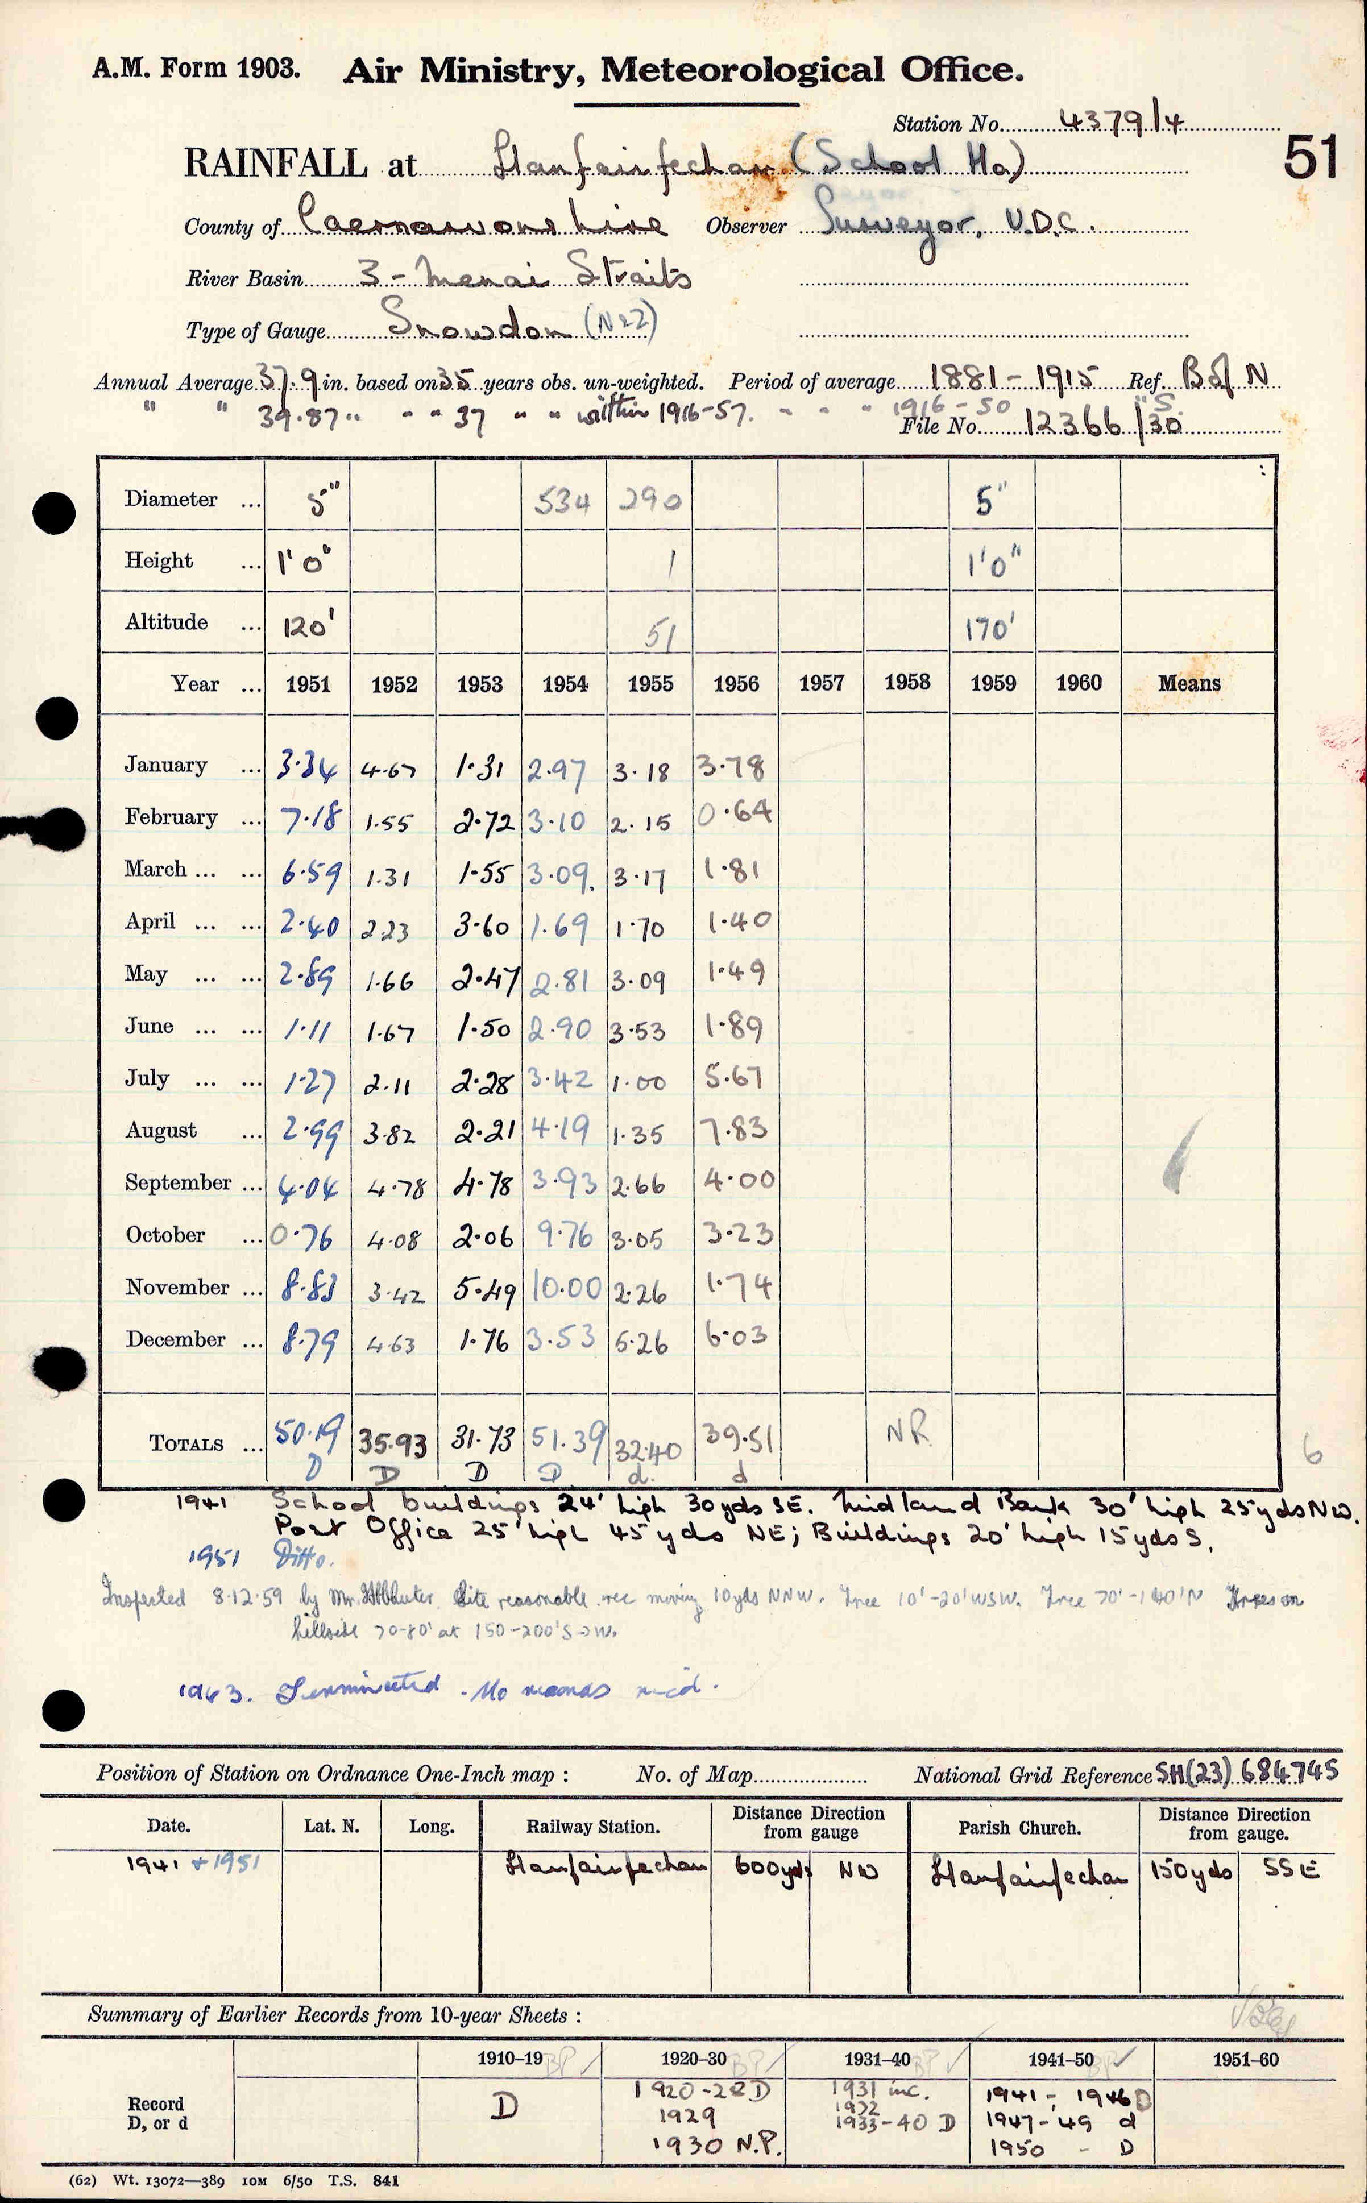 A.M. Form 1903. Air Ministry, Meteorological Office.
Station No. 4379/4
51
RAINFALL at Llanfairfechan (School Ho)
County of Caernarvonshire Observer Surveyor, U.D.C.
River Basin 3 - Menai Straits
Type of Gauge Snowdon (N22)
Annual Average 37.9 in. based on 35 years obs. un-weighted. Period of average 1881-1915 Ref. B of N
" " 39.87 " " " 37 " " within 1916-57. " " " 1916-50 " S.
File No. 12366/30
Diameter ... 5" 534 290 5"
Height ... 1'0" 1 1'0"
Altitude ... 120' 51 170'
Year ... 1951 1952 1953 1954 1955 1956 1957 1958 1959 1960 Means
January ... 3.34 4.67 1.31 2.97 3.18 3.78
February ... 7.18 1.55 2.72 3.10 2.15 0.64
March ... ... 6.59 1.31 1.55 3.09. 3.17 1.81
April ... ... 2.40 2.23 3.60 1.69 1.70 1.40
May ... ... 2.89 1.66 2.47 2.81 3.09 1.49
June ... ... 1.11 1.67 1.50 2.90 3.53 1.89
July ... ... 1.27 2.11 2.28 3.42 1.00 5.67
August ... 2.99 3.82 2.21 4.19 1.35 7.83
September ... 4.04 4.78 4.78 3.93 2.66 4.00
October ... 0.76 4.08 2.06 9.76 3.05 3.23
November ... 8.83 3.42 5.49 10.00 2.26 1.74
December ... 8.79 4.63 1.76 3.53 5.26 6.03
TOTALS ... 50.19 35.93 31.73 51.39 32.40 39.51 NR
D D D D d. d
6
1941 School buildings 24' high 30yds SE. Midland Bank 30' high 25yds NW.
Post Office 25' high 45 yds NE; Buildings 20' high 15yds S.
1951 Ditto.
Inspected 8.12.59 by Mr. Site reasonable rec moving 10yds NNW. Tree 10'-20' WSW. Tree 70'- N Trees on
hillside 70-80' at 150-200' S
1963. Terminated. No records rec'd.
Position of Station on Ordnance One-Inch map : No. of Map National Grid Reference SH(23) 684745
Date. Lat. N. Long. Railway Station. Distance Direction from gauge Parish Church. Distance Direction from gauge.
1941 + 1951 Llanfairfechan 600yds NW Llanfairfechan 150yds SSE
Summary of Earlier Records from 10-year Sheets :
1910-19 BP 1920-30 BP 1931-40 BP 1941-50 BP 1951-60
Record
D, or d
D
1920-28 D
1929
1930 N.P.
1931 inc.
1932
1933-40 D
1941 - 1946 D
1947-49 d
1950 - D
(62) Wt. 13072—389 10M 6/50 T.S. 841